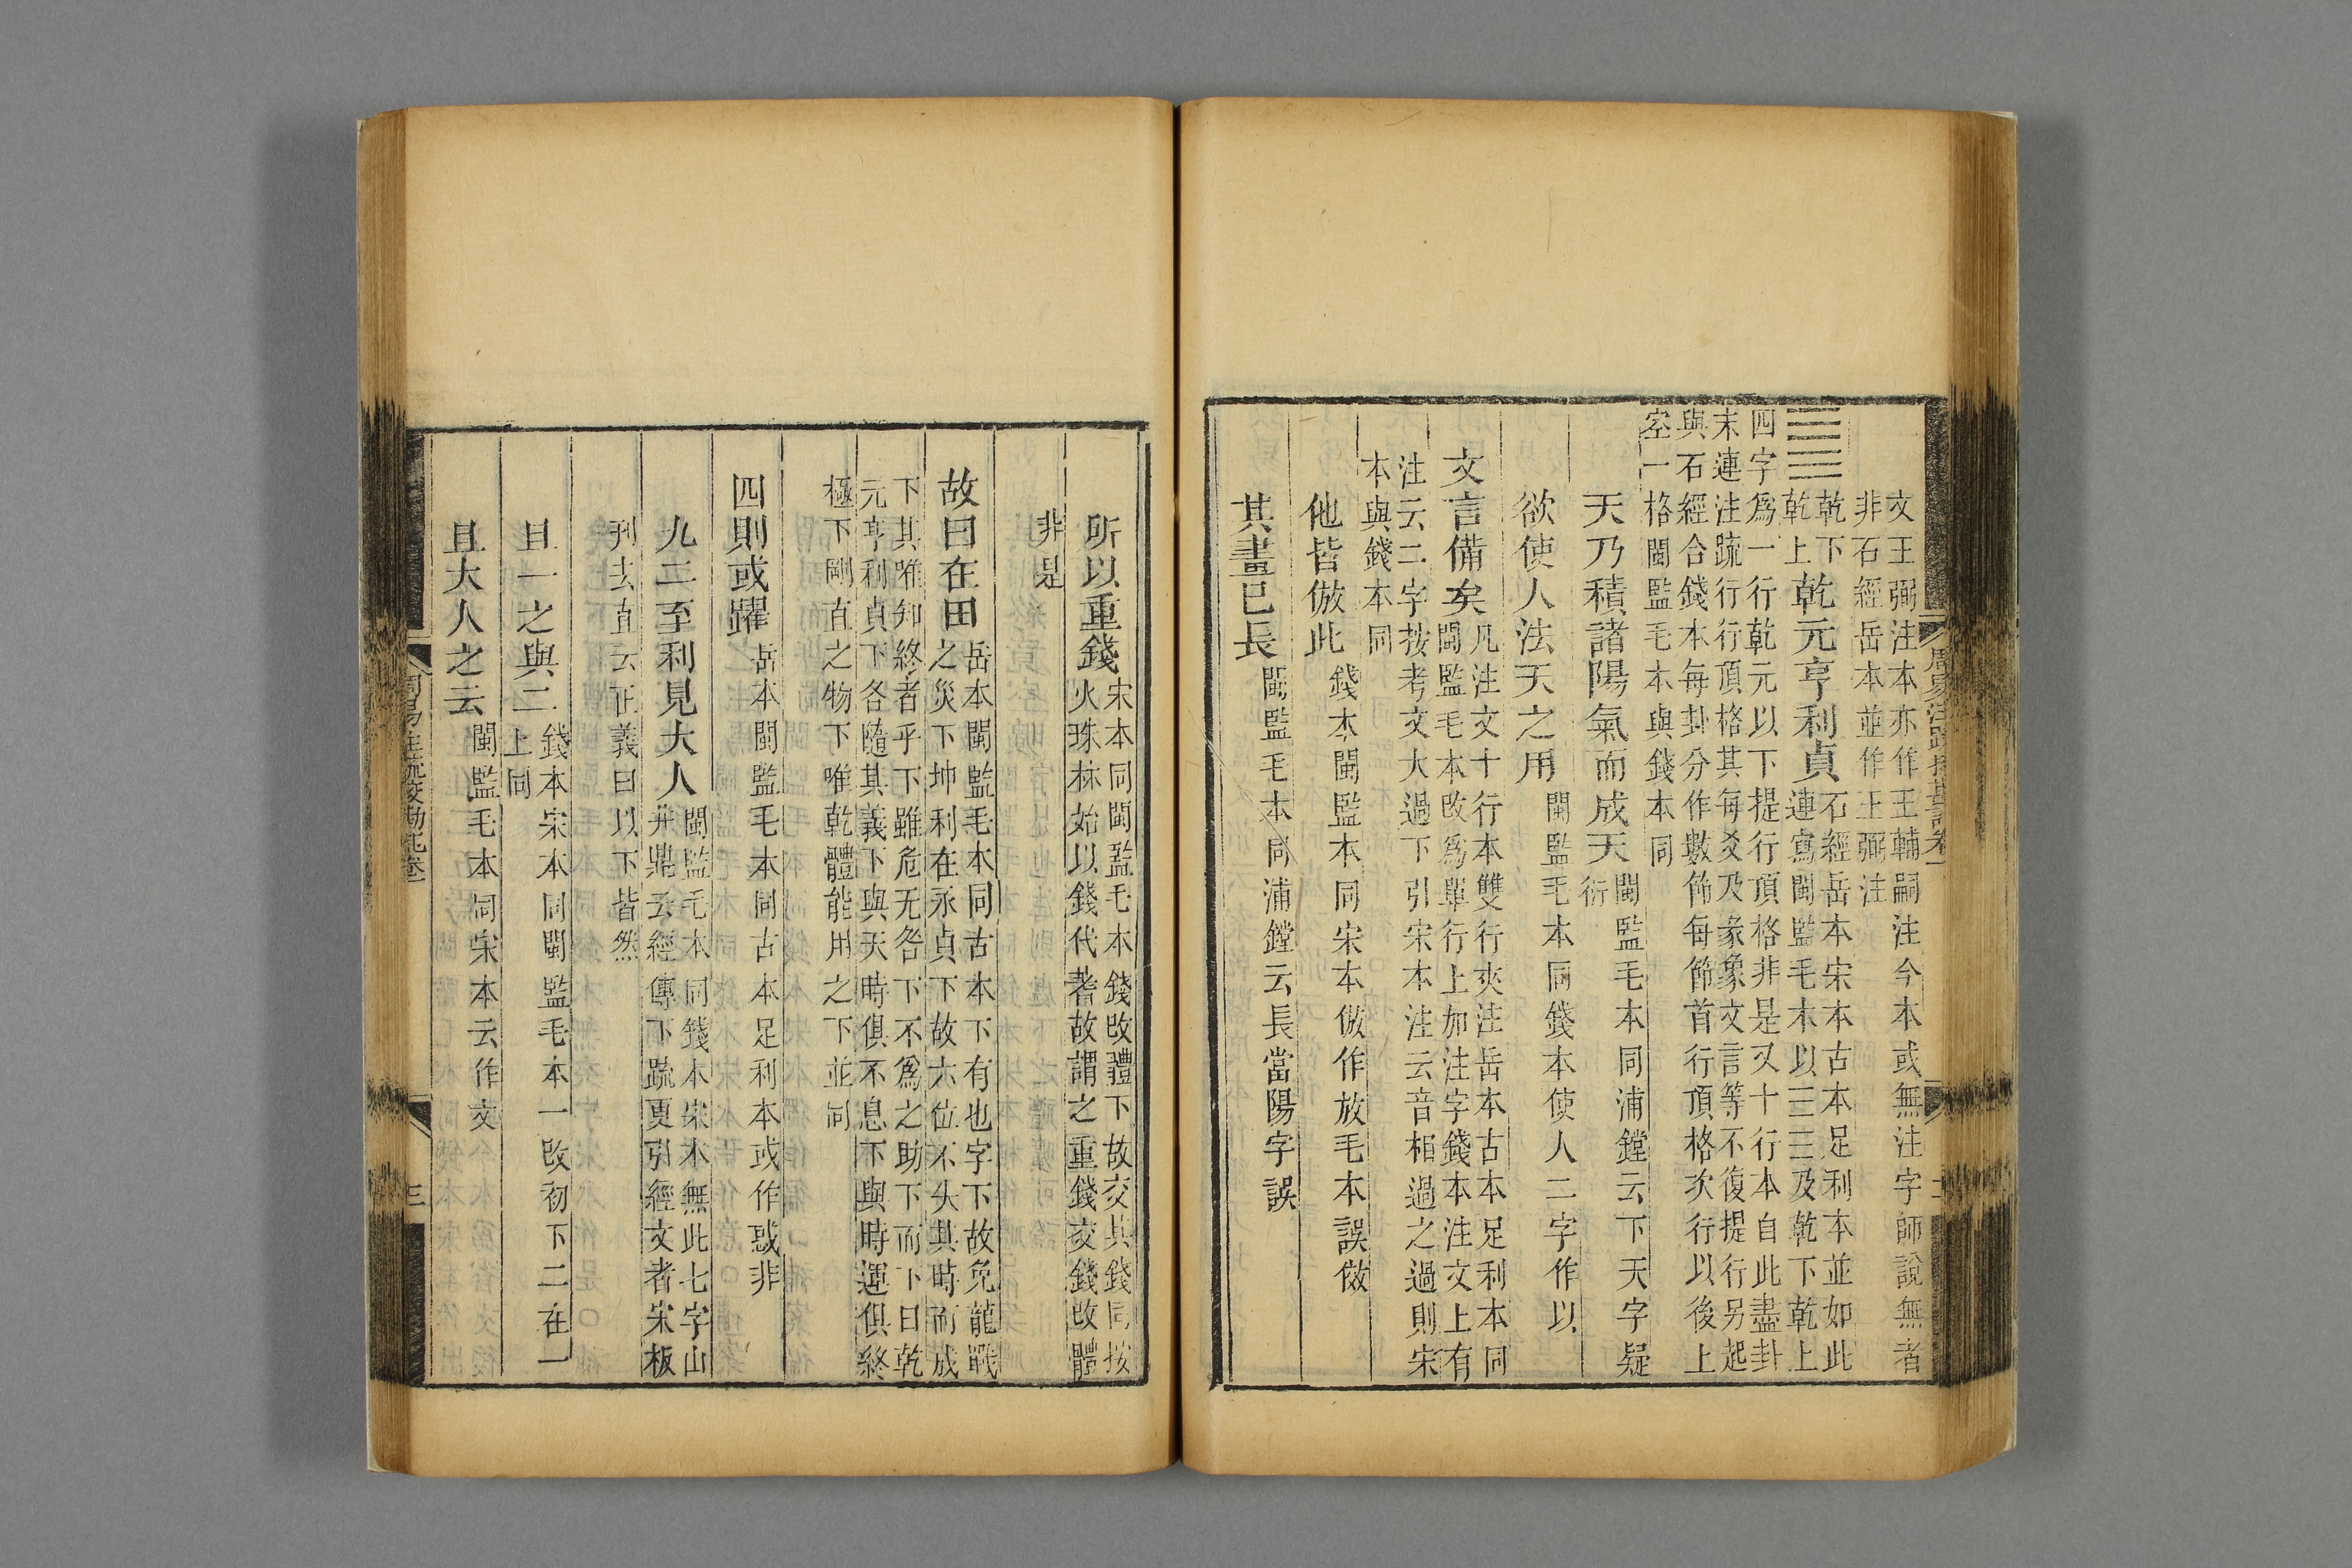 文王弼注本亦作王輔嗣注今本或無注字師說無者
非石經岳本並作王弼注
☰☰乾下乾上乾元亨利貞石經岳本宋本古本足利本並如此
連寫閩監毛本以三三及乾下乾上
四字爲一行乾元以下提行頂格非是又十行本自此盡卦
末連注疏行行頂格其每爻及彖象文言等不復提行另起
與石經合錢本每卦分作數節每節首行頂格次行以後上
空一格閩監毛本與錢本同
天乃積諸陽氣而成天閩監毛本同浦鏜云下天字疑
衍
欲使人法天之用閩監毛本同錢本使人二字作以
文言備矣凡注文十行本雙行夾注岳本古本足利本同
閩監毛本改爲單行上加注字錢本注文上有
注云二字按考文大過下引宋本注云音相過之過則宋
本與錢本同
他皆倣此錢本閩監本同宋本倣作放毛本誤傚
其畫已長閩監毛本同浦鏜云長當陽字誤
周易注疏挍勘記卷一
二
所以重錢宋本同閩監毛本錢改體下故交其錢同按
火珠林始以錢代蓍故謂之重錢交錢改體
非是
故曰在田岳本閩監毛本同古本下有也字下故免龍戰
之災下坤利在永貞下故六位不失其時而成
下其唯知終者乎下雖危无咎下不爲之助下而下曰乾
元亨利貞下各隨其義下與天時俱不息下與時運俱終
極下剛直之物下唯乾體能用之下並同
四則或躍岳本閩監毛本同古本足利本或作惑非
九二至利見大人閩監毛本同錢本宋本無此七字山
井鼎云經傳下疏更引經文者宋板
刋去直云正義曰以下皆然
且一之與二錢本宋本同閩監毛本一改初下二在一
上同
且大人之云閩監毛本同宋本云作文
周易注疏挍勘記卷一
三